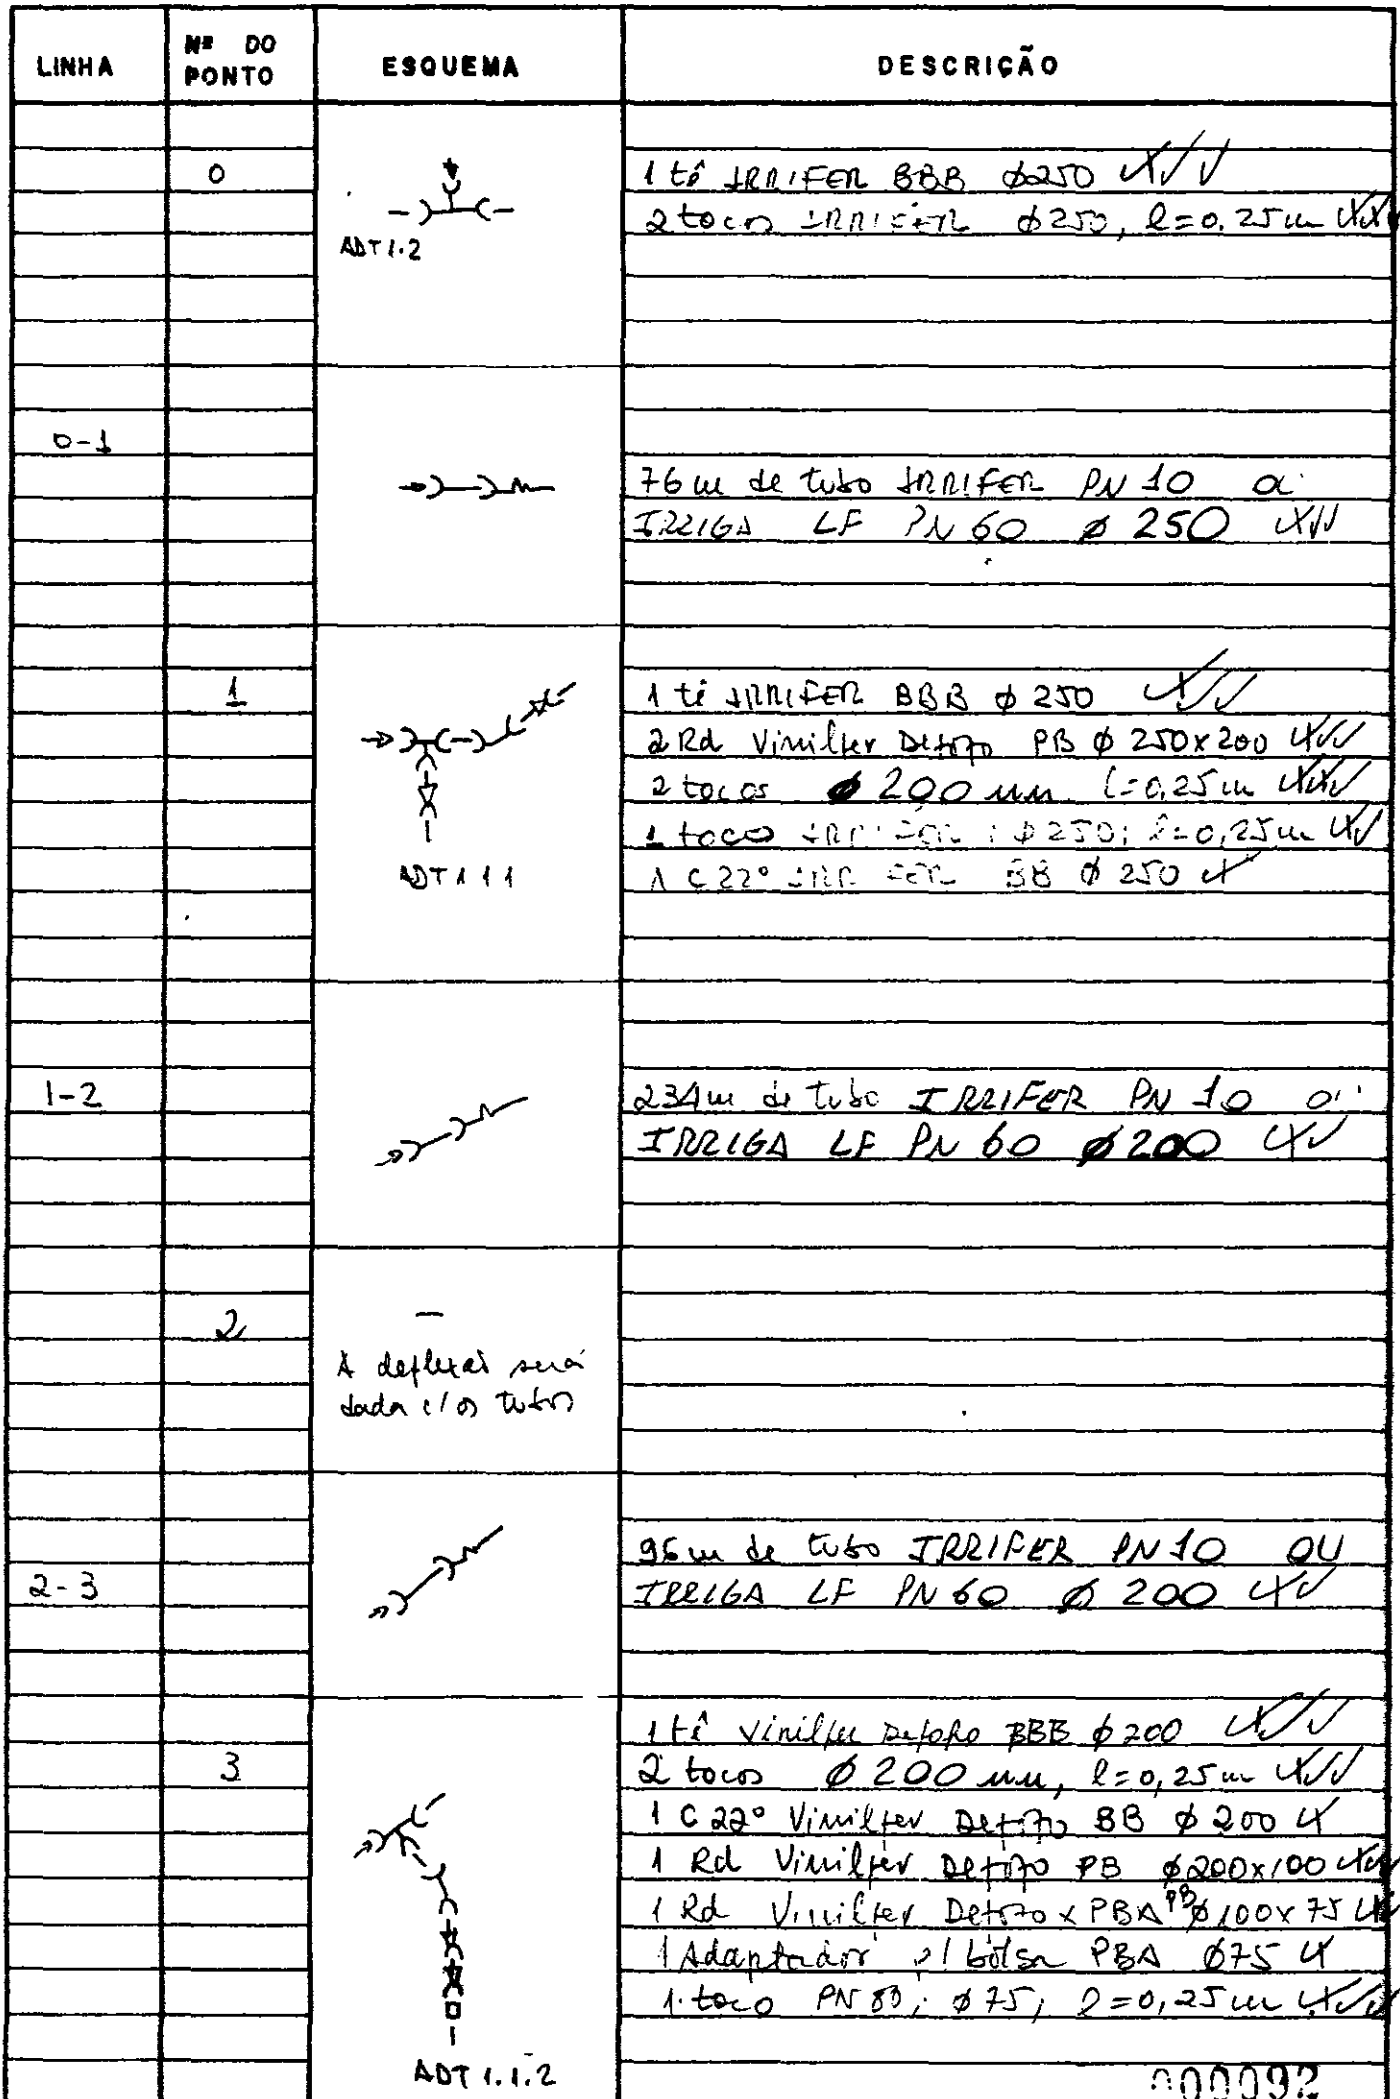 LINHA
Nº DO PONTO
ESQUEMA
DESCRIÇÃO
0
ADT 1.2
1 tê IRRIFER BBB ø250
2 tocos IRRIFER ø250, l=0,25m
0-1
76m de tubo IRRIFER PN 10
IRRIGA LF PN 60 ø 250
1
ADT 1 1 1
1 tê IRRIFER BBB ø 250
2 Rd Vinilfer Defofo PB ø 250x200
2 tocos ø 200 mm l=0,25m
1 toco IRRIFER ; ø250; l=0,25m
1 C 22° IRRIFER BB ø 250
1-2
234m de tubo IRRIFER PN 10
IRRIGA LF PN 60 ø 200
2
A deflexão será
dada c/ os tubos
2-3
96m de tubo IRRIFER PN 10 OU
IRRIGA LF PN 60 ø 200
3
ADT 1.1.2
1 tê Vinilfer Defofo BBB ø 200
2 tocos ø 200 mm, l=0,25m
1 C 22° Vinilfer Defofo BB ø 200
1 Rd Vinilfer Defofo PB ø200x100
1 Rd Vinilfer Defofo x PBA PB ø100x75
1 Adaptador p/ bolsa PBA ø75
1 toco PN 80; ø75; l=0,25m
000092